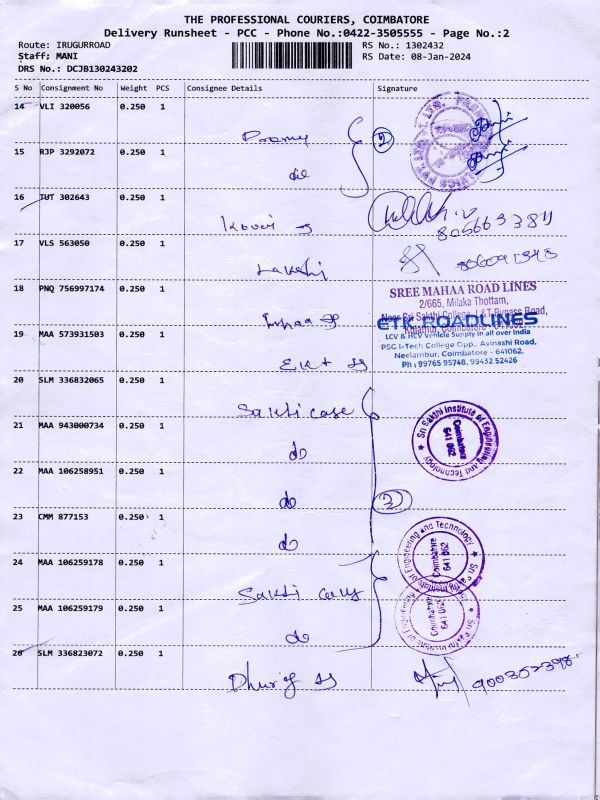 THE PROFESSIONAL COURIERS, COIMBATORE
Delivery Runsheet - PCC - Phone No.:0422-3505555 - Page No.:2
Route: IRUGURROAD
RS No.: 1302432
Staff; MANI
RS Date: 08-Jan-2024
DRS No.: DCJB130243202
S No Consignment No Weight PCS Consignee Details Signature
14 VLI 320056 0.250 1
2
15 RJP 3292072 0.250 1
do
16 TUT 302643 0.250 1
17 VLS 563050 0.250 1
Lakshi
18 PNQ 756997174 0.250 1
SREE MAHAA ROAD LINES
2/665, Milaka Thottam,
Near Sri Sakthi College, L&T Bypass Road,
19 MAA 573931503 0.250 1
ETK ROADLINES
LCV & HCV Vehicle Supply in all over India
PSG i-Tech College Opp., Avinashi Road,
Neelambur, Coimbatore - 641062.
Ph : 99765 95748, 99432 52426
20 SLM 336832065 0.250 1
Sakthi case
21 MAA 943000734 0.250 1
do
Sri Sakthi Institute of Engineering and Technology
Coimbatore
641 062
22 MAA 106258951 0.250 1
do
23 CMM 877153 0.250 1
do
24 MAA 106259178 0.250 1
Sakthi
Coimbatore
641 062
25 MAA 106259179 0.250 1
do
Coimbatore
641 062
26 SLM 336823072 0.250 1